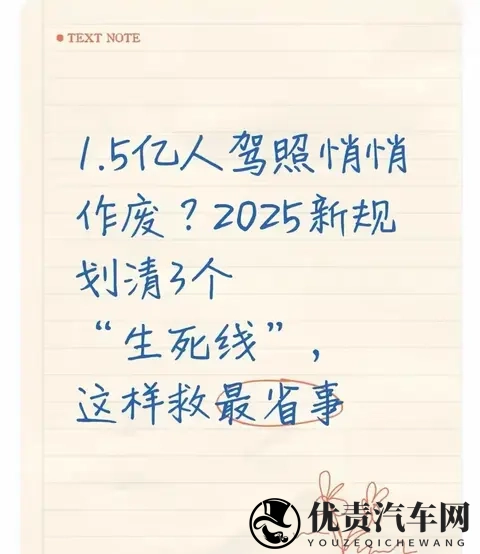 TEXT NOTE
1.5亿人驾照悄悄
作废？2025新规
划清3个
“生死线”，
这样救最省事
优责汽车网
YOUZEQICHEWANG